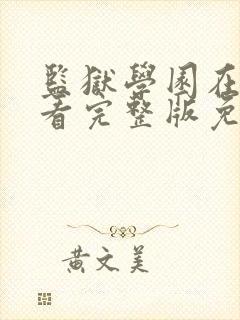 監獄學園在
看完整版免
黃文美